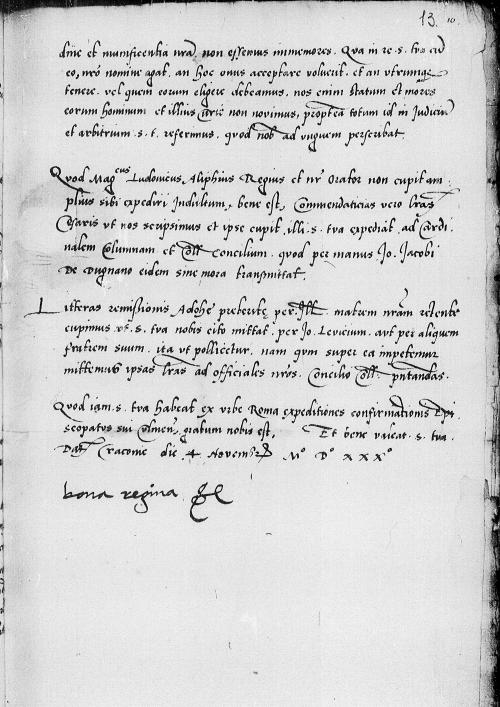 13. 10.
dine et munificentia nrã non essemus immemores. Qua in re .s. tva cũ
eo, nrõ nomine agat, an hoc onus acceptare voluerit, et an utrumque
tenere, vel quem eorum eligere debeamus, nos enim statum et mores
eorum hominum et illius curie non novimus, propterea totum id in Judiciũ
et arbitrium .s. t. referimus, quod nob ad unguem perscribat.
Quod Magcus Ludovicus Aliphius Regius et nr Orator non cupit am
plius sibi expediri Indultum, bene est, Commendaticias vero lras
Cesaris ut nos scripsimus et ipse cupit, illi .s. tva expediat ad Cardi
nalem Columnam et Coll Concilium. quod per manus Jo. Jacobi
de Dugnano eidem sine mora transmittat.
Litteras remissionis Adohe preterite per Ill. matrem nrãm retente
cupimus ut .s. tva nobis cito mittat per Jo. Levicium, aut per aliquem
fratrem suum, ita ut pollicetur, nam qum super ea impetenur
mittemus ipsas lras ad officiales nros, Concilio Coll pntandas.
Quod iam .s. tva habeat ex urbe Roma expeditiones confirmationis Epi
scopatus sui gratum nobis est, Et bene valeat .s. tva.
Dat Cracovie die 4 Novembr Mo Do xxxo
bona regina